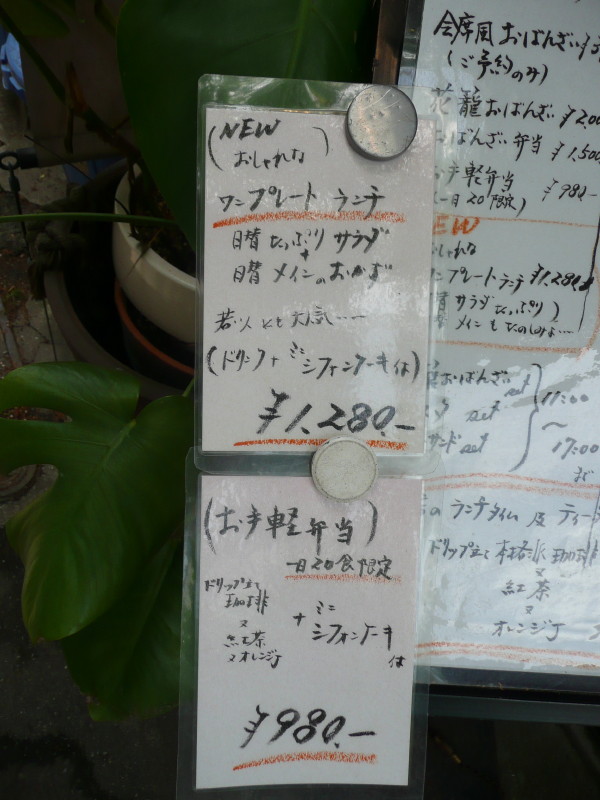 NEW
(おしゃれな)
ワンプレート ランチ
日替 たっぷり サラダ
+
日替 メインのおかず
若い人にも大人気……
(ドリンク+ミニシフォンケーキ付)
¥1,280.-
(お手軽弁当)
一日20食限定
ドリップ立て
珈琲
又
紅茶
又オレンジJ
+ ミニ
シフォンケーキ
付
¥980.-
会席風おばんざい¥
(ご予約のみ)
花籠おばんざい ¥2,00
おばんざい弁当 ¥1,500
お手軽弁当 ¥980-
一日20限定)
NEW
おしゃれな
ワンプレートランチ ¥1,280
サラダたっぷり
メインもたのしみよ…
おばんざい set
set
サンド set
11:00
〜
17:00
まで
の ランチタイム 及 ティー
ドリップ立て 本格派 珈琲
又
紅茶
又
オレンジJ